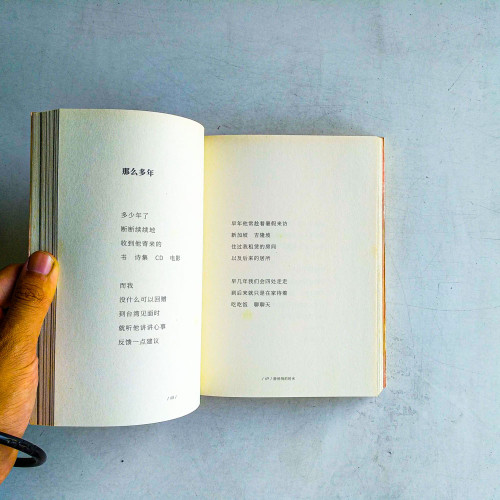 那么多年
多少年了
断断续续地
收到他寄来的
书 诗集 CD 电影
而我
没什么可以回赠
到台湾见面时
就听他讲讲心事
反馈一点建议
/ 66 /
早年他常趁着暑假来访
新加坡 吉隆坡
住过我租赁的房间
以及后来的居所
早几年我们会四处走走
到后来就只是在家待着
吃吃饭 聊聊天
/ 67 /